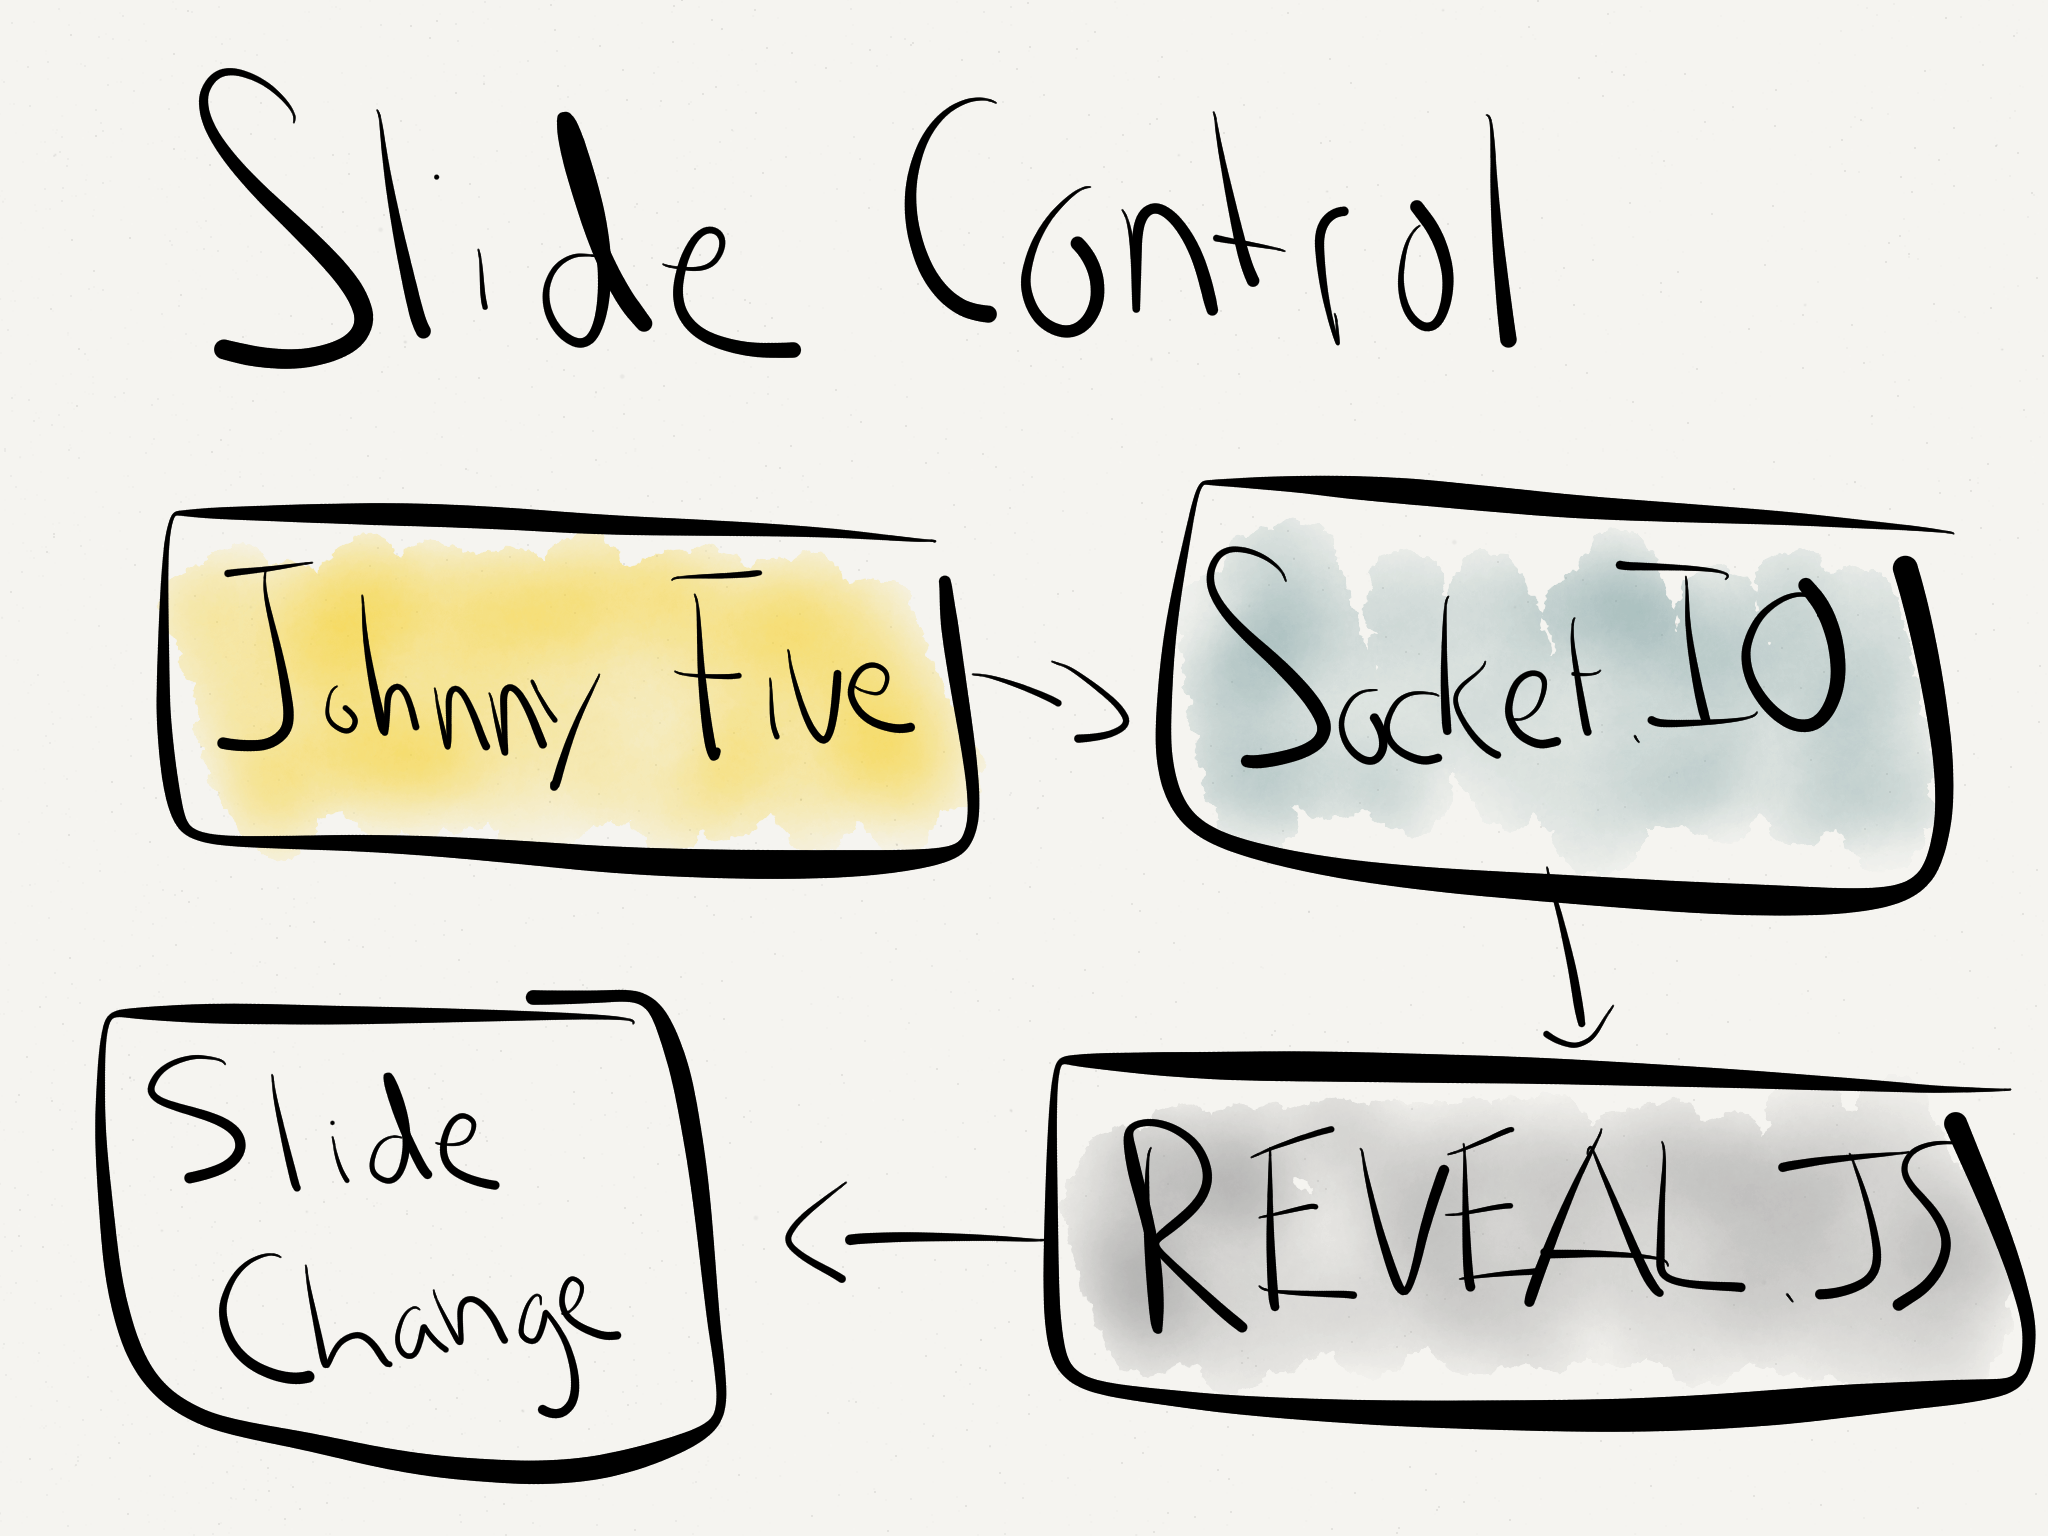 Slide Control
Johnny Five
Socket.IO
REVEAL.JS
Slide
Change